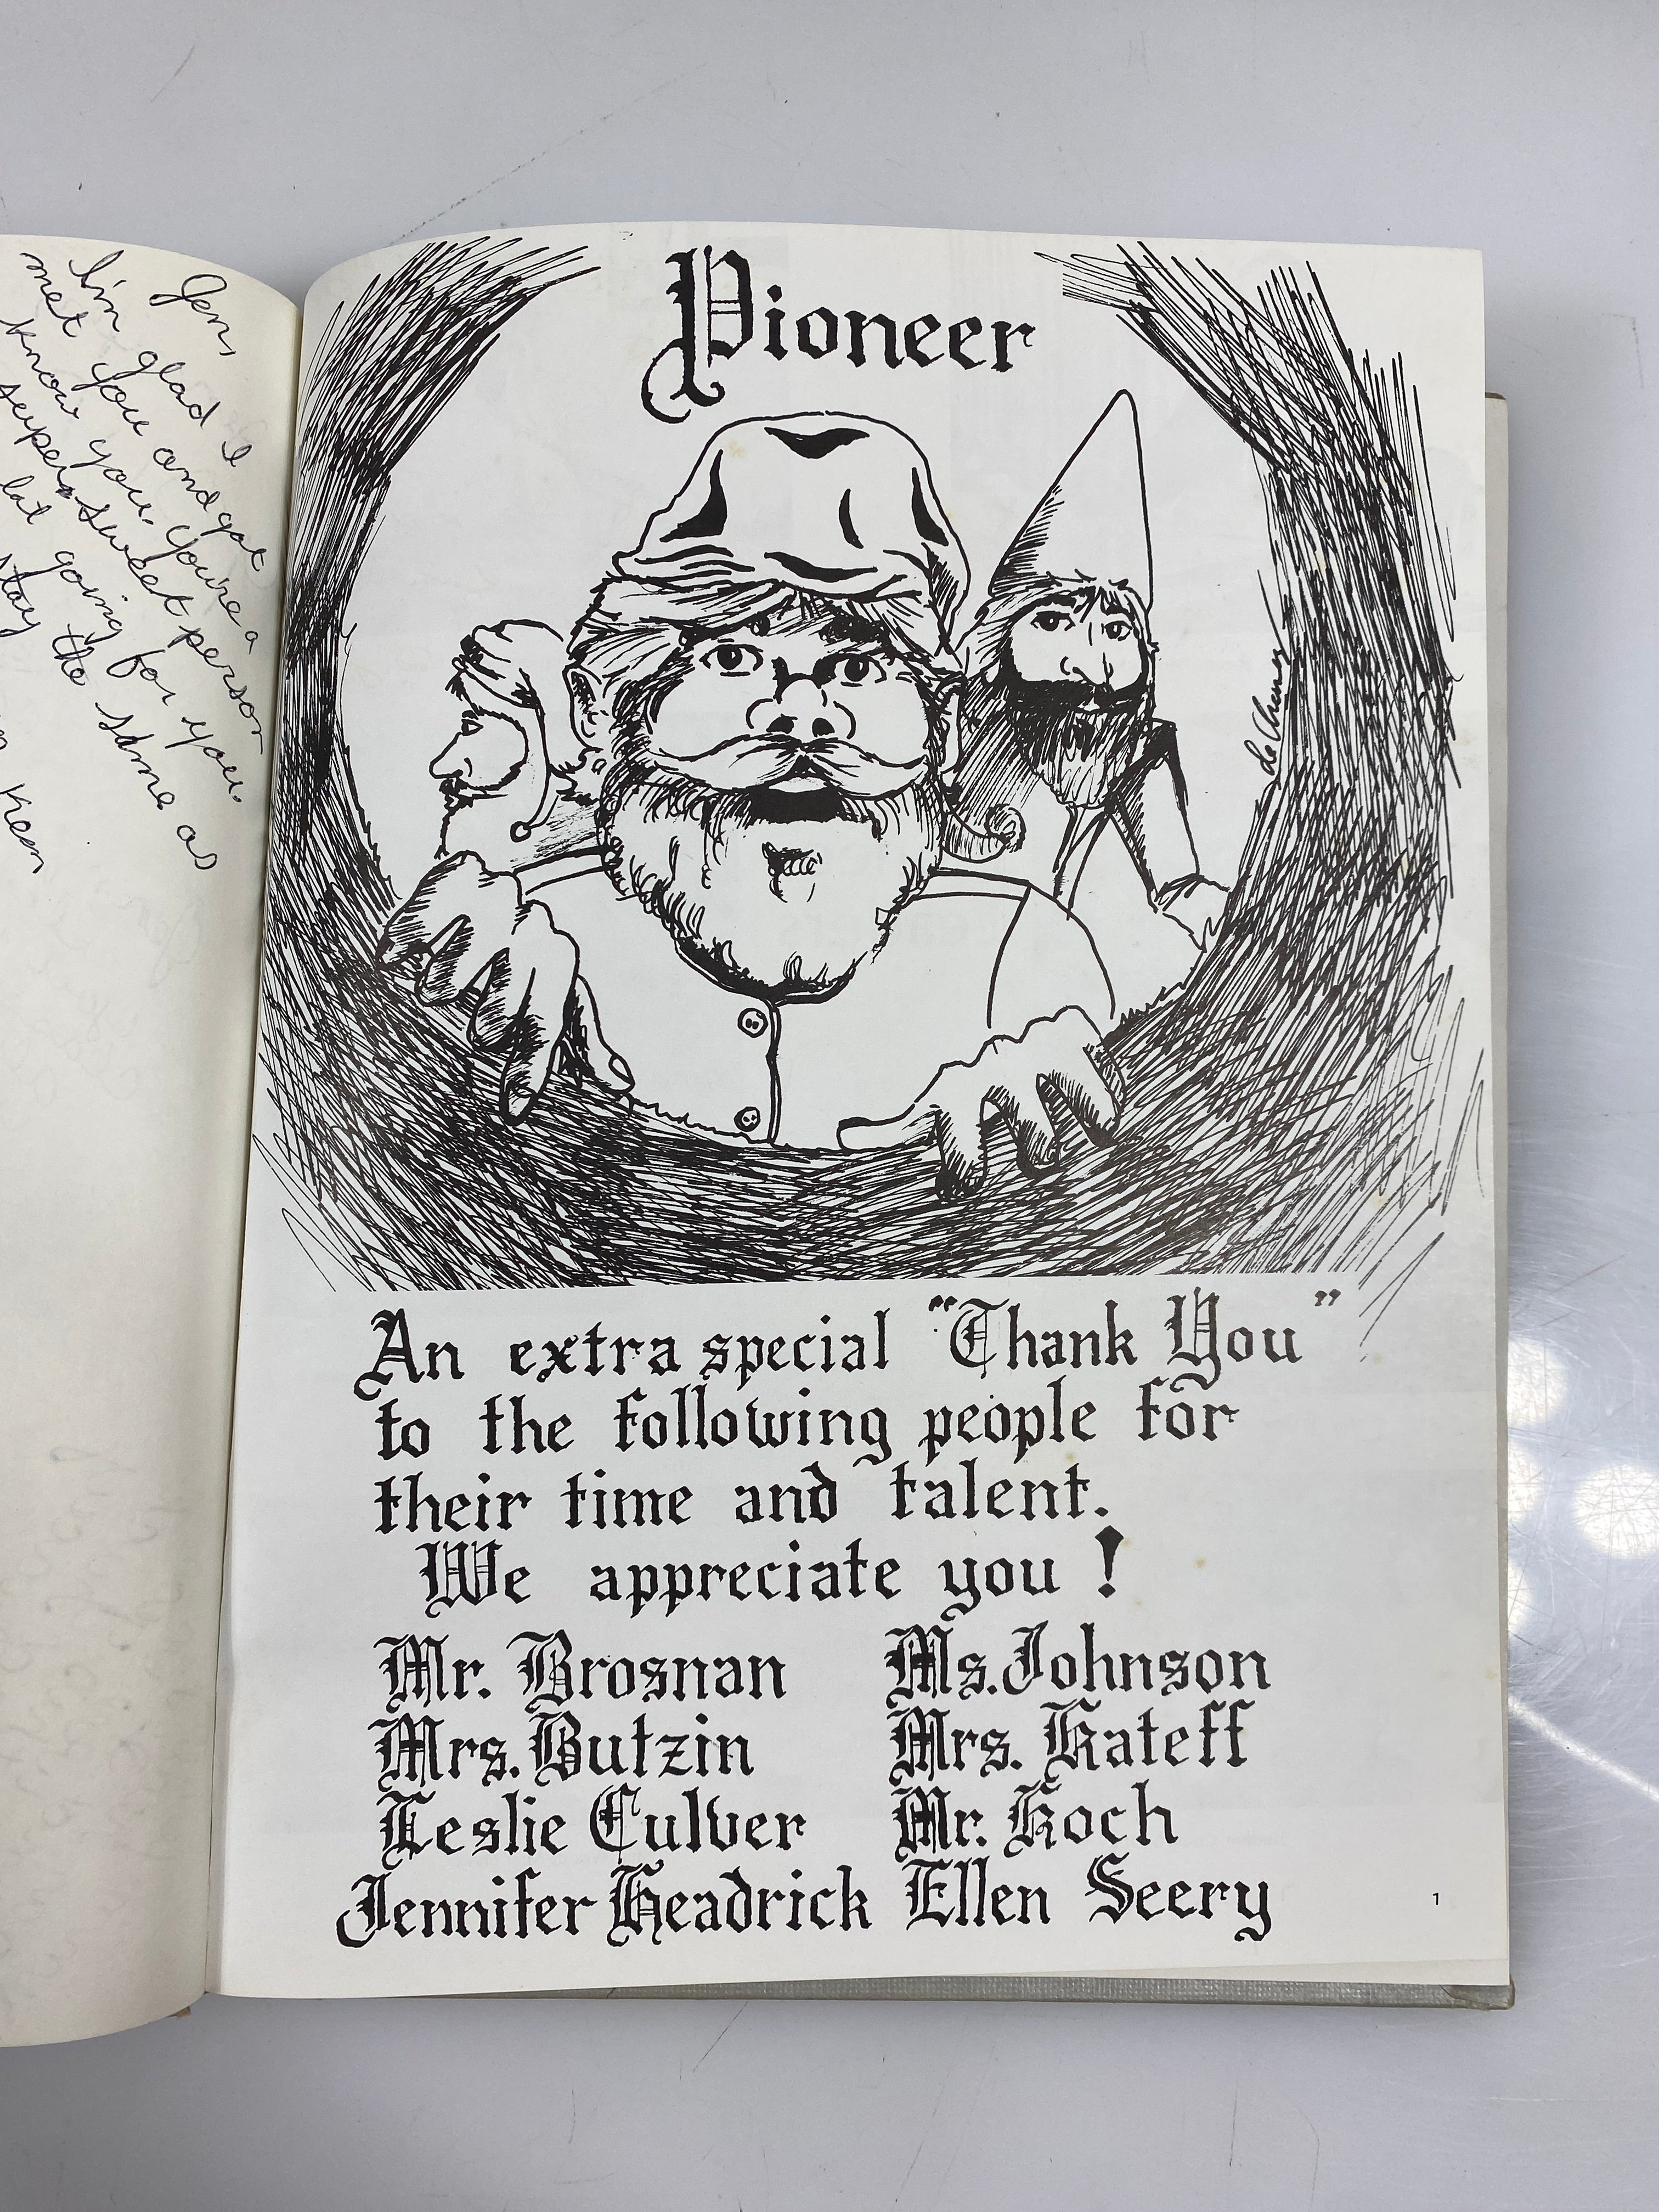 Jen,
I'm glad I
met you and got
know you. You're a
super sweet person
lot going for you.
stay the same as
Keen
Pioneer
An extra special "Thank You"
to the following people for
their time and talent.
We appreciate you!
Mr. Brosnan Ms. Johnson
Mrs. Butzin Mrs. Kateff
Leslie Culver Mr. Koch
Jennifer Headrick Ellen Seery
1